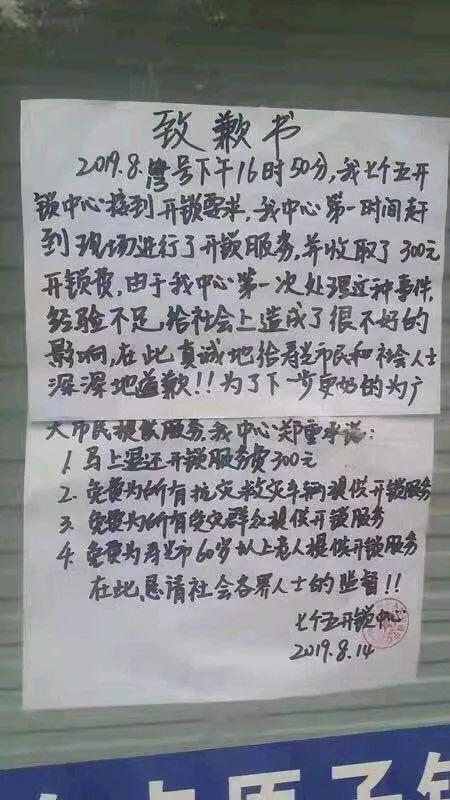 致歉书
2019.8.13号下午16时50分,我七仟五开
锁中心接到开锁要求,我中心第一时间赶
到现场进行了开锁服务,并收取了300元
开锁费,由于我中心第一次处理这种事件,
经验不足,给社会上造成了很不好的
影响,在此真诚地给寿光市民和社会人士
深深地道歉!!为了下一步更好的为广
大市民提供服务,我中心郑重承诺:
1. 马上退还开锁服务费300元
2. 免费为所有抗灾救灾车辆提供开锁服务
3. 免费为所有受灾群众提供开锁服务
4. 免费为寿光市60岁以上老人提供开锁服务
在此恳请社会各界人士的监督!!
七仟五开锁中心
2019.8.14
原子锁